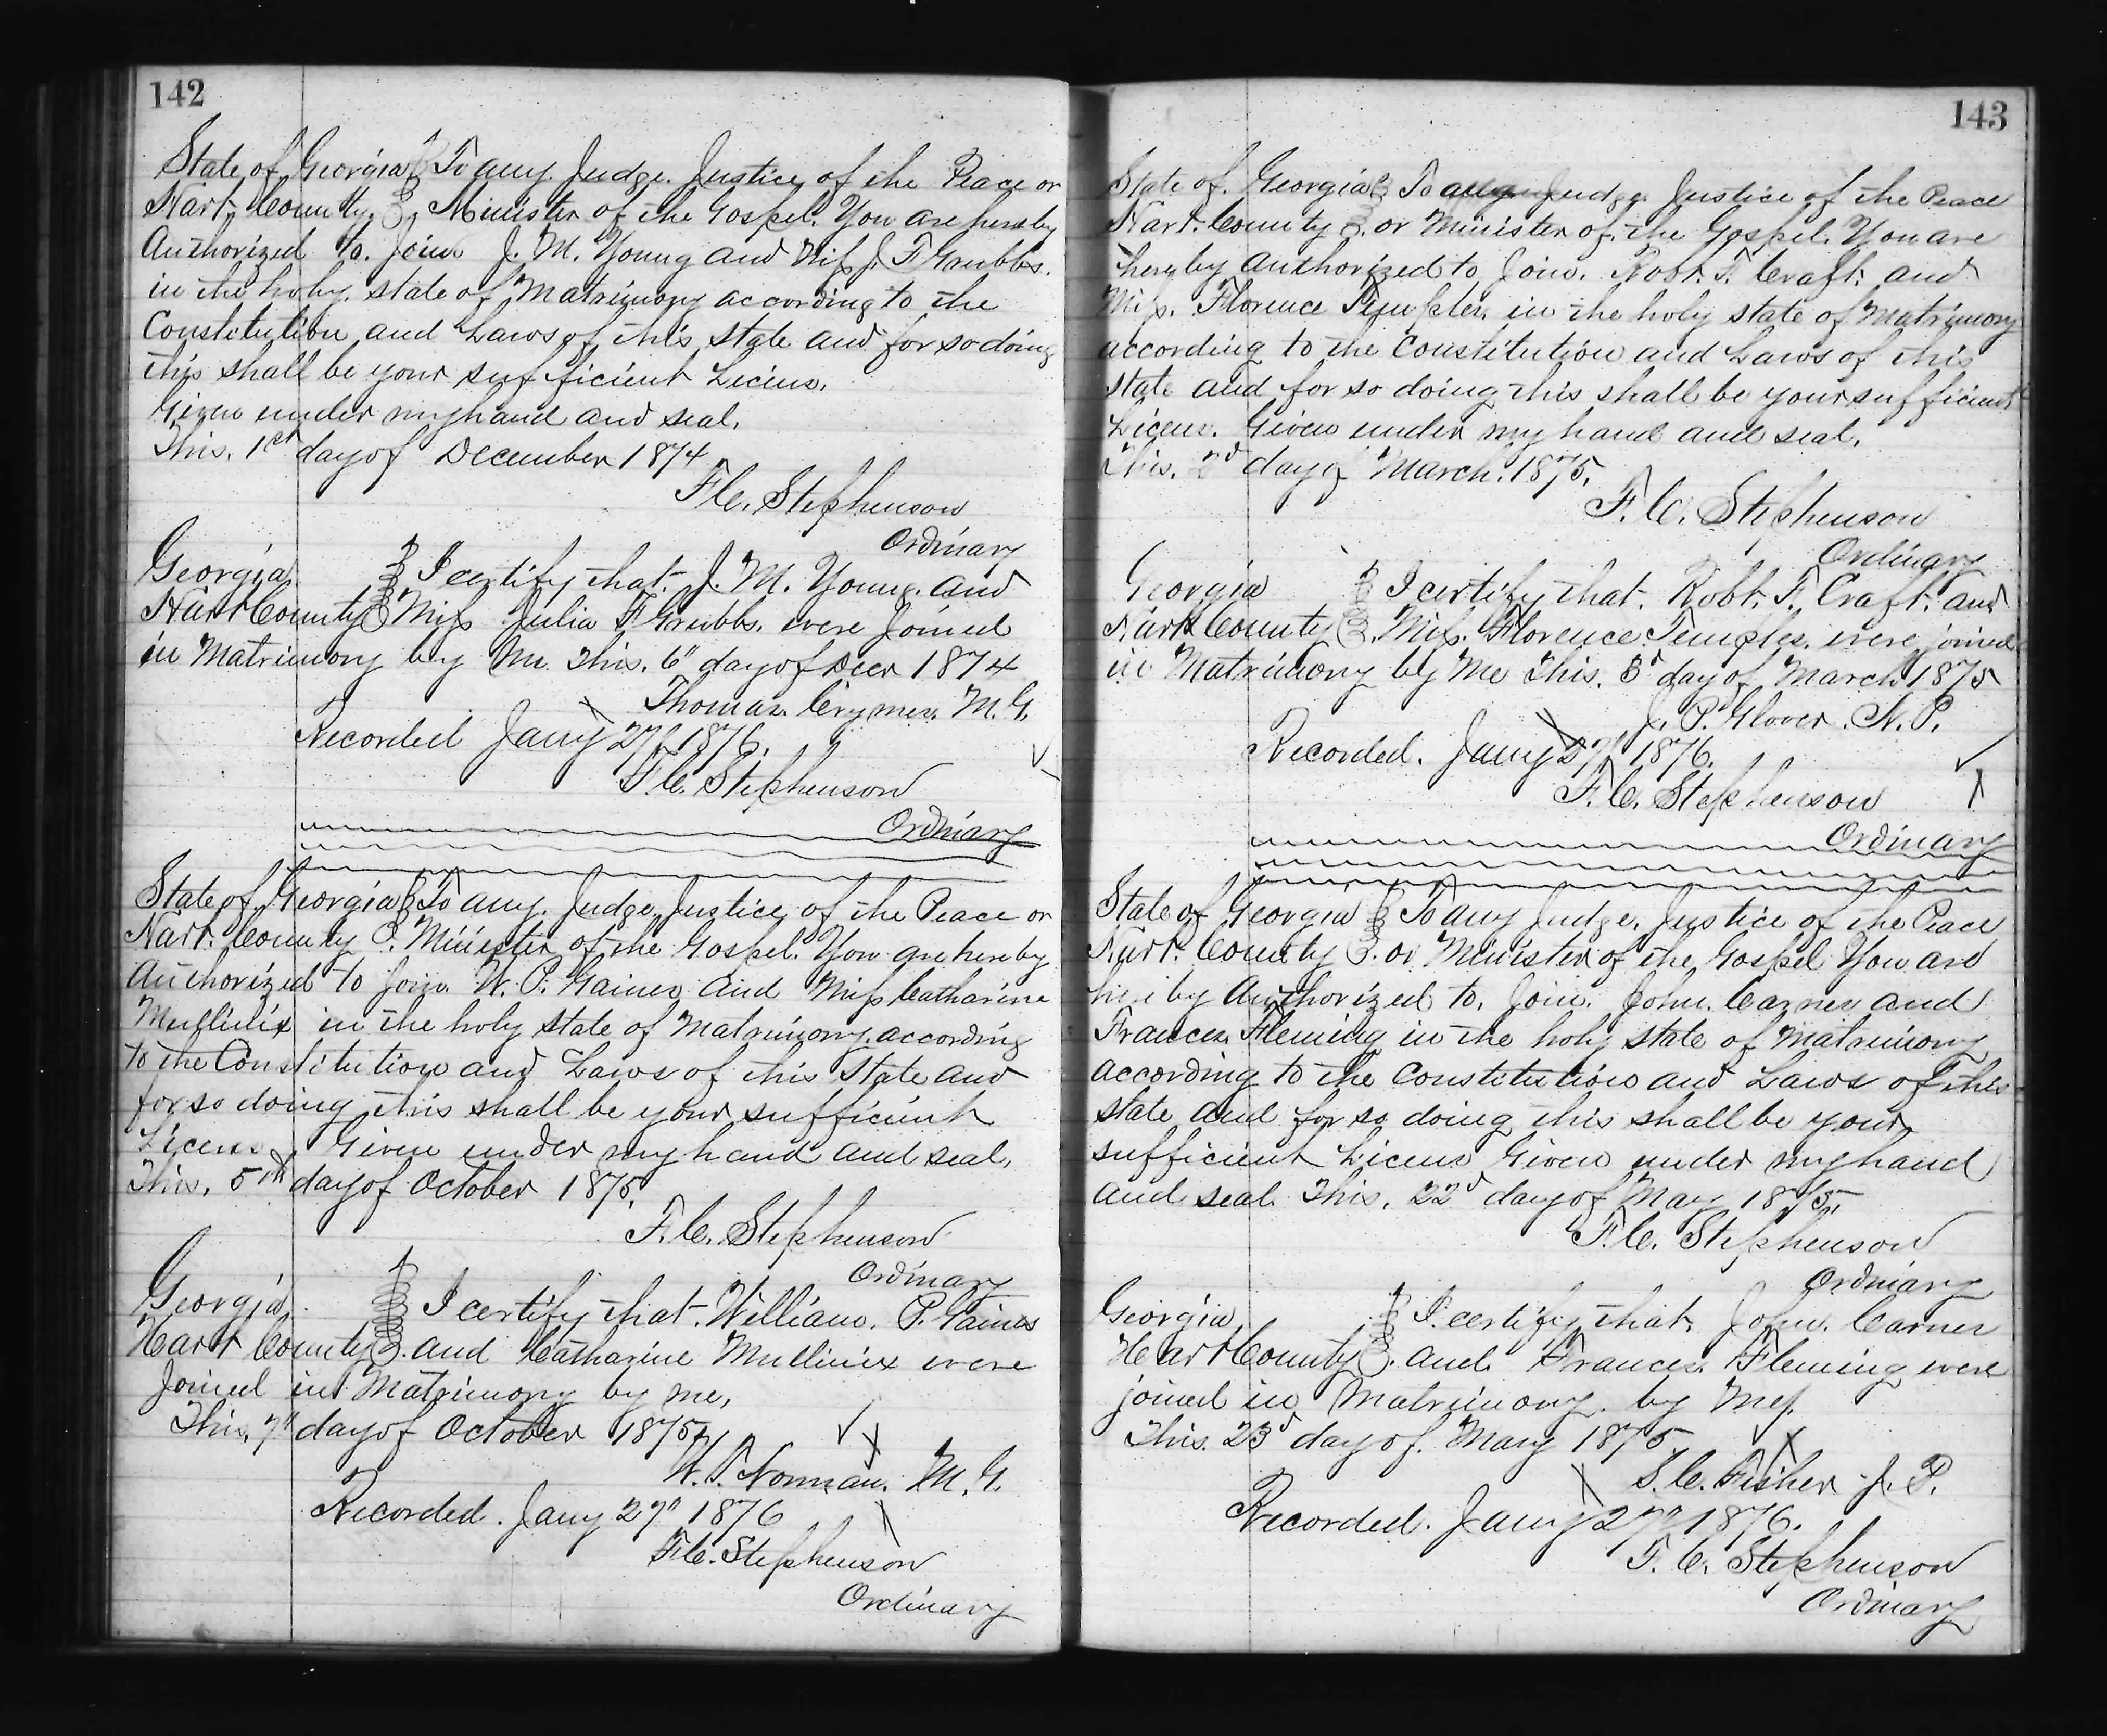 142
State of Georgia } To any Judge. Justice of the Peace or
Hart County. } Minister of the Gospel. You are hereby
Authorized to. Join J. M. Young and Miss J. F Grubbs.
in the holy. state of Matrimony according to the
Constitution and Laws of this state and for so doing
this shall be your sufficient Licens.
Given under my hand and seal.
This. 1st day of December 1874
F. C. Stephenson
Ordinary
Georgia } I certify that J. M. Young. and
Hart County } Miss Julia F Grubbs. were Joined
in Matrimony by Me. This. 6" day of Decr 1874
Thomas. Crymes. M. G.
Recorded Jany 27" 1876.
F. C. Stephenson
Ordinary
State of Georgia } To any. Judge. Justice of the Peace or
Hart. County }. Minister of the Gospel. You are hereby
Authorized to Join. W. P. Gaines and Miss Catharine
Mullinix in the holy state of Matrimony. according
to the Constitution and Laws of this State and
for so doing this shall be your sufficient
Licens. Given under my hand and seal.
This. 5th day of October 1875.
F. C. Stephenson
Ordinary
Georgia. } I certify that. William. P. Gaines
Hart County }. and Catharine Mullinix were
Joined in Matrimony by me,
This. 7" day of October 1875.
W. T. Norman. M. G.
Recorded. Jany 27" 1876
F. C. Stephenson
Ordinary
143
State of. Georgia } To any Judge. Justice of the Peace
Hart. County }. or Minister of. the Gospel. You are
hereby authorized to Join. Robt. F. Craft. and
Miss. Florence Temples. in the holy state of Matrimony
according to the Constitution and Laws of this
state and for so doing this shall be your sufficient
Licens. Given under my hand and seal.
This. 2d day of March. 1875.
F. C. Stephenson
Ordinary
Georgia } I certify that. Robt. F. Craft. and
Hart County }. Miss. Florence Temples. were joined
in Matrimony by Me This. 3d day of March 1875
J. P. Glover. N. P.
Recorded. Jany 27" 1876.
F. C. Stephenson
Ordinary
State of Georgia } To any Judge. Justice of the Peace
Hart. County }. or Minister of the Gospel You are
hereby Authorized to. Join. John. Carnes and
Frances Fleming in the holy state of Matrimony
according to the Constitution and Laws of this
state and for so doing this shall be your
sufficient Licens Given under my hand
and seal. This. 22d day of May 1875.
F. C. Stephenson
Ordinary
Georgia } I certify that. John. Carnes
Hart County }. and. Frances. Fleming were
joined in Matrimony. by Me.
This. 23d day of. May 1875
S. C. Fisher J. P.
Recorded. Jany 27" 1876.
F. C. Stephenson
Ordinary